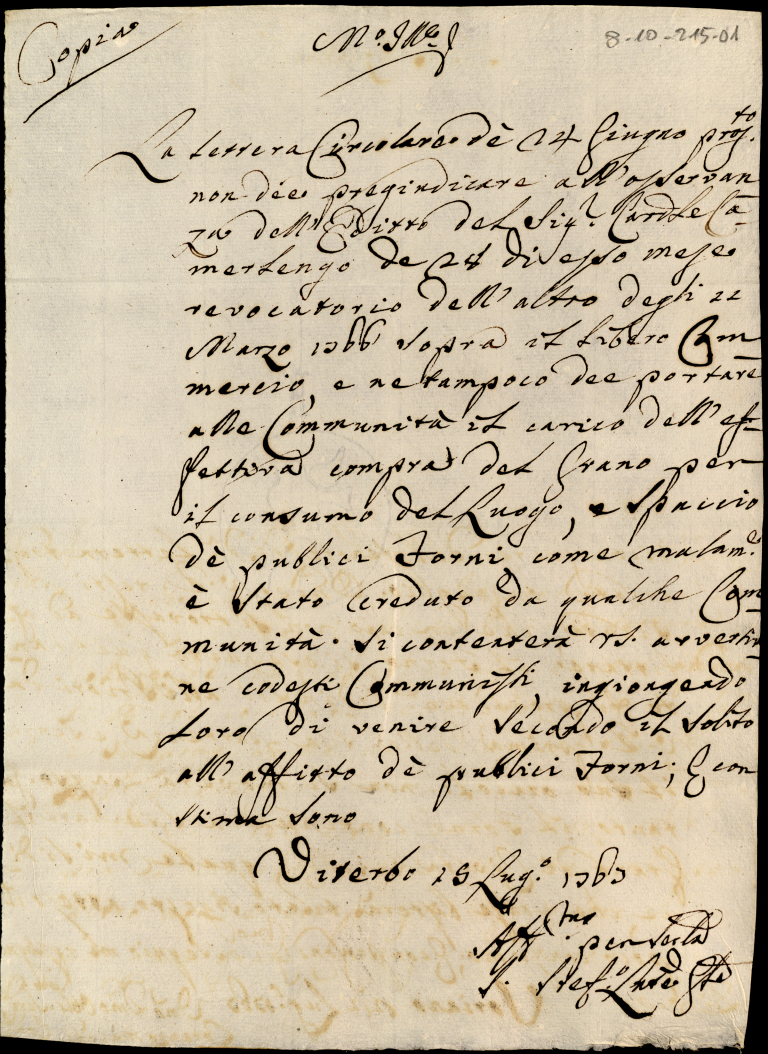 Copia
Mo. Ille.
8-10-215-01
La lettera Circolare de 24 Giugno pros.to
non dée pregiudicare all'osservan
za dell'Editto del Sig.r Cardle Ca-
merlengo de 24 di esso mese
revocatorio dell'altro degli 22
Marzo 1766 sopra il libero Com-
mercio, e ne tampoco dee portare
alle Communità il carico dell'ef-
fettiva compra del Grano per
il consumo del Luogo, e spaccio
dè publici Forni, come malam.e
è stato creduto da qualche Com-
munità. Si contenterà VS. avvertir
ne codesti Communisti, ingiongendo
loro di venire secondo il solito
all'affitto dè publici Forni; E con
stima sono
Viterbo 28 Lug.o 1767
Aff.mo per